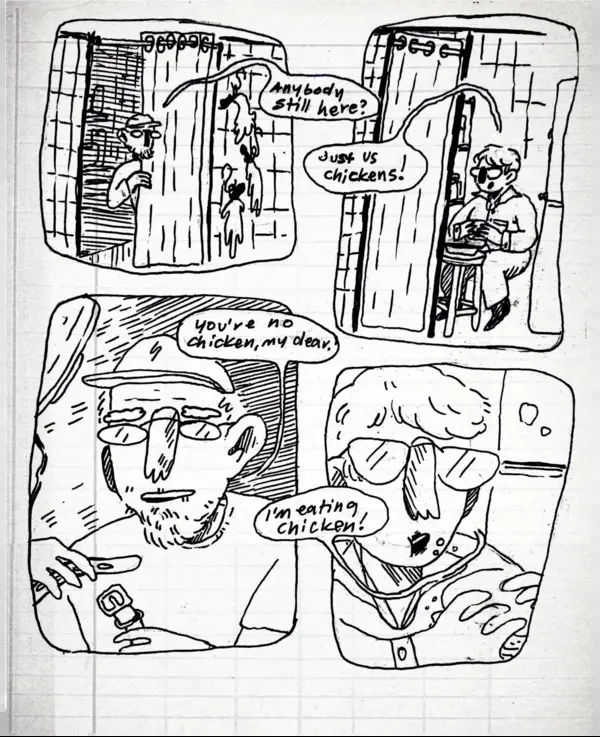 Anybody
still here?
Just us
chickens!
you're no
chicken, my dear.
i'm eating
chicken!